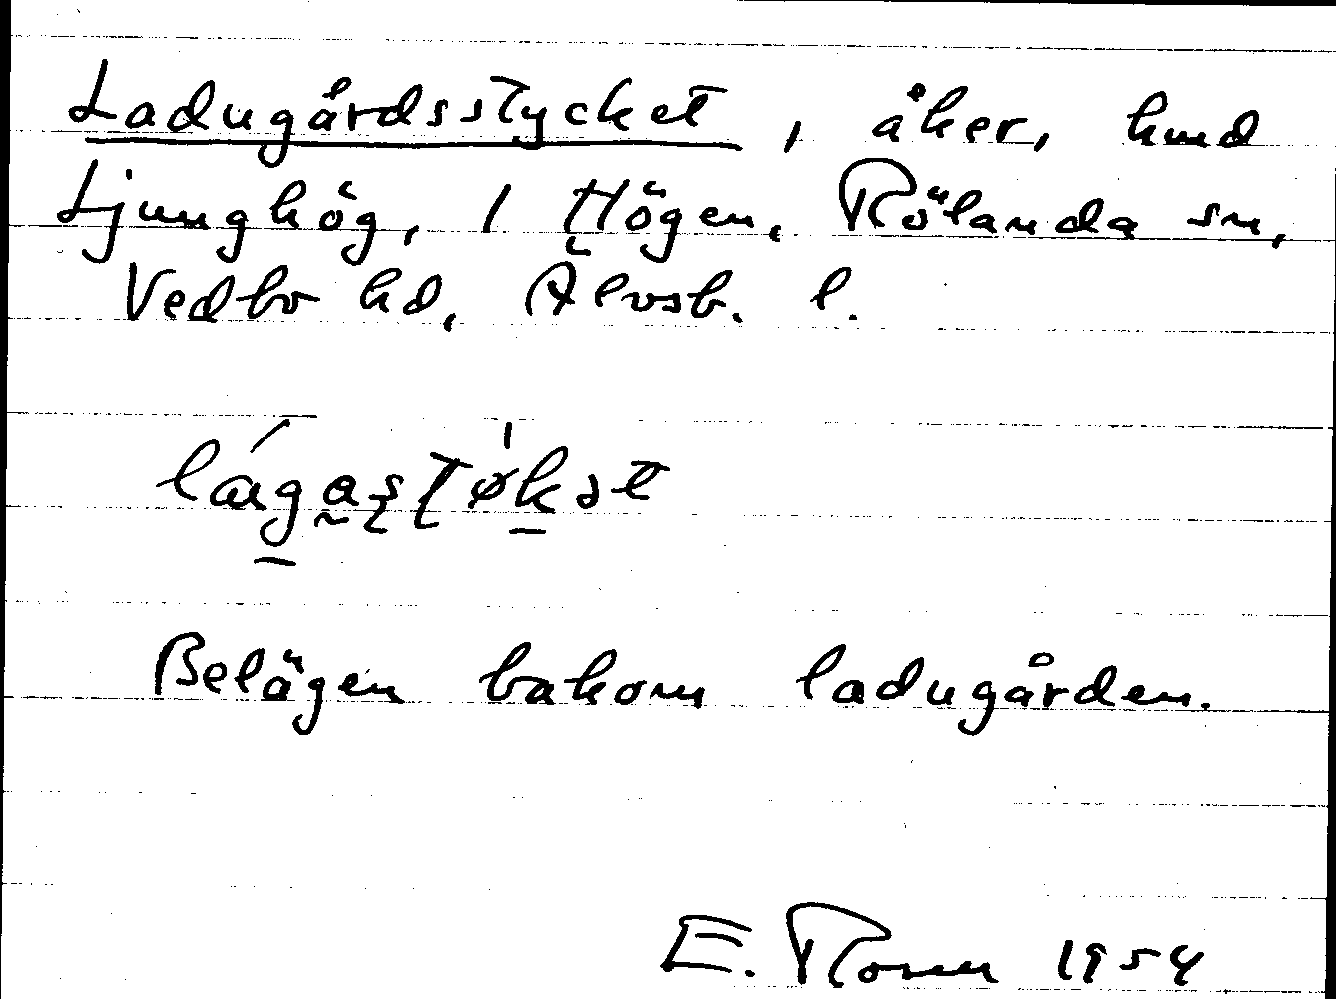 Ladugårdsstycket, åker, hmd
Ljunghög, 1 Högen, Rölanda sn,
Vedbo hd, Älvsb. l.
Belägen bakom ladugården.
E. Rosen 1954